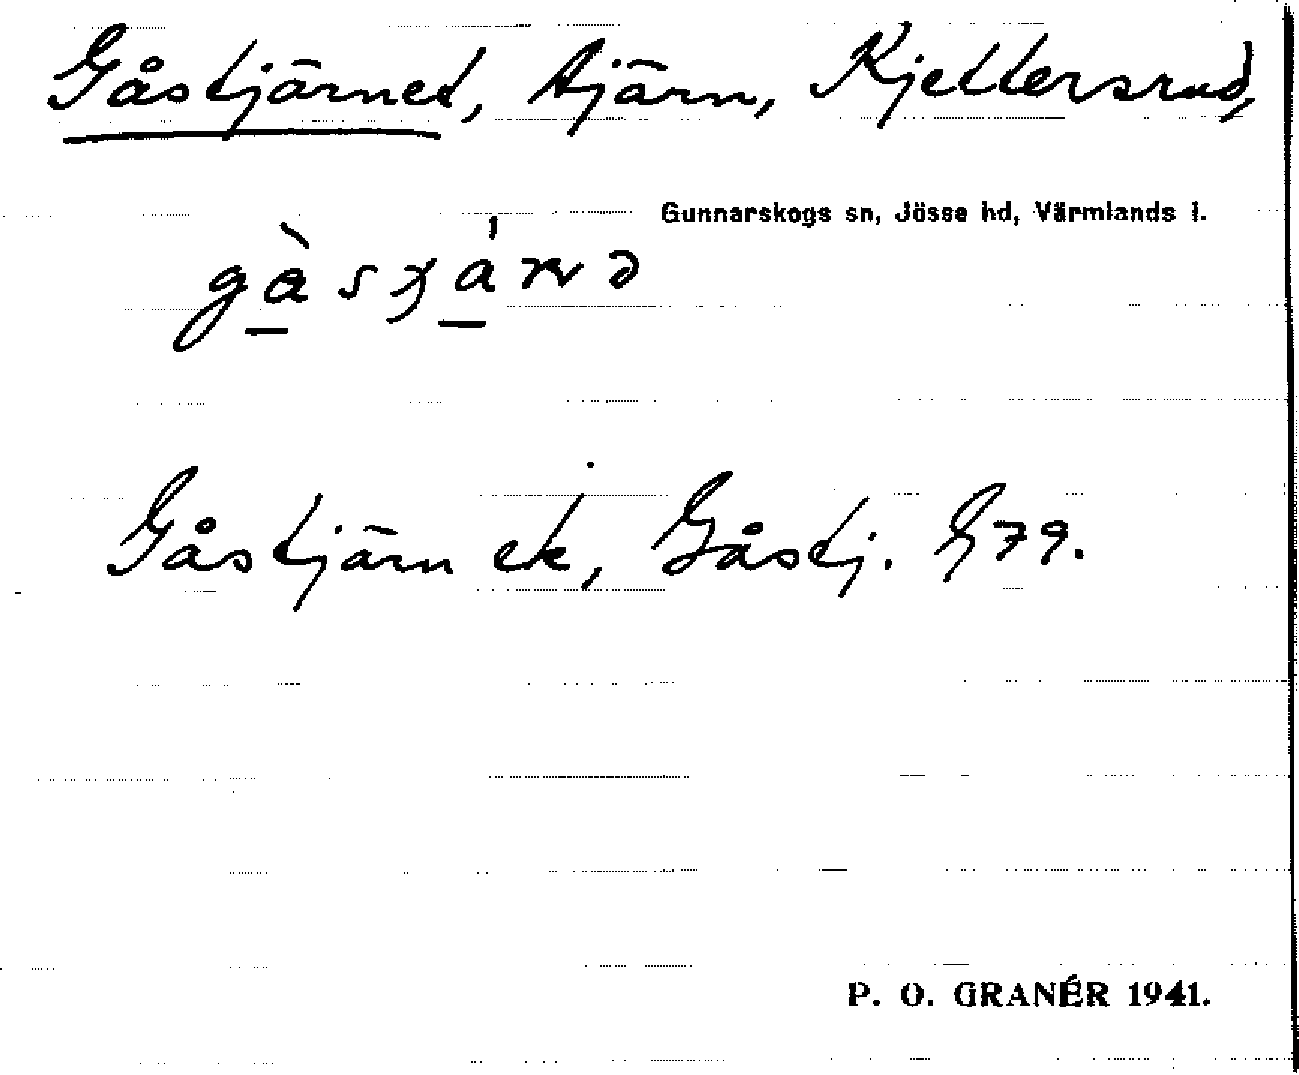 Gåstjärnet, tjärn, Kjettersrud,
Gunnarskogs sn, Jösse hd, Värmlands l.
Gåstjärn ek, Gåstj. 79.
P. O. GRANÉR 1941.